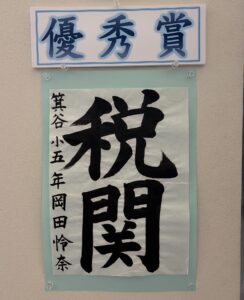 優秀賞
税関
箕谷小五年岡田怜奈